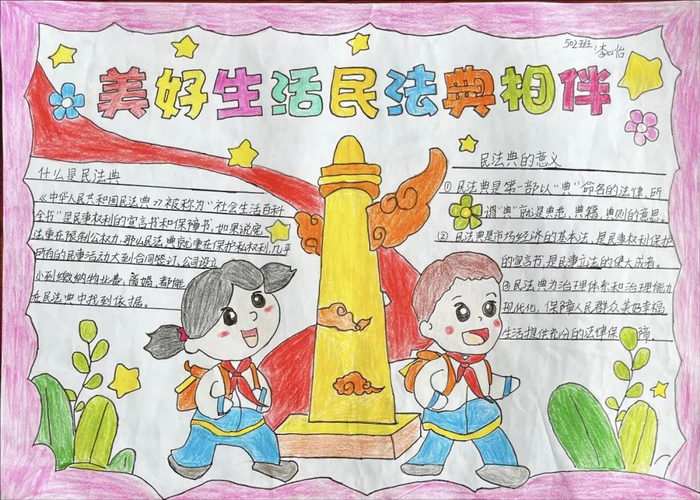 502班
李心怡
美好生活民法典相伴
什么是民法典
《中华人民共和国民法典》被称为"社会生活百科
全书"是民事权利的宣言书和保障书,如果说宪
法重在限制公权力,那么民法典就重在保护私权利,几乎
所有的民事活动大到合同签订,公司设立
小到缴纳物业费,离婚,都能
在民法典中找到依据。
民法典的意义
①民法典是第一部以"典"命名的法律,所
谓"典"就是典范,典籍,典则的意思。
②民法典是市场经济的基本法,是民事权利保护
的宣言书,是民事立法的集大成者。
③民法典为治理体系和治理能力
现代化,保障人民群众美好幸福
生活提供充分的法律保障。